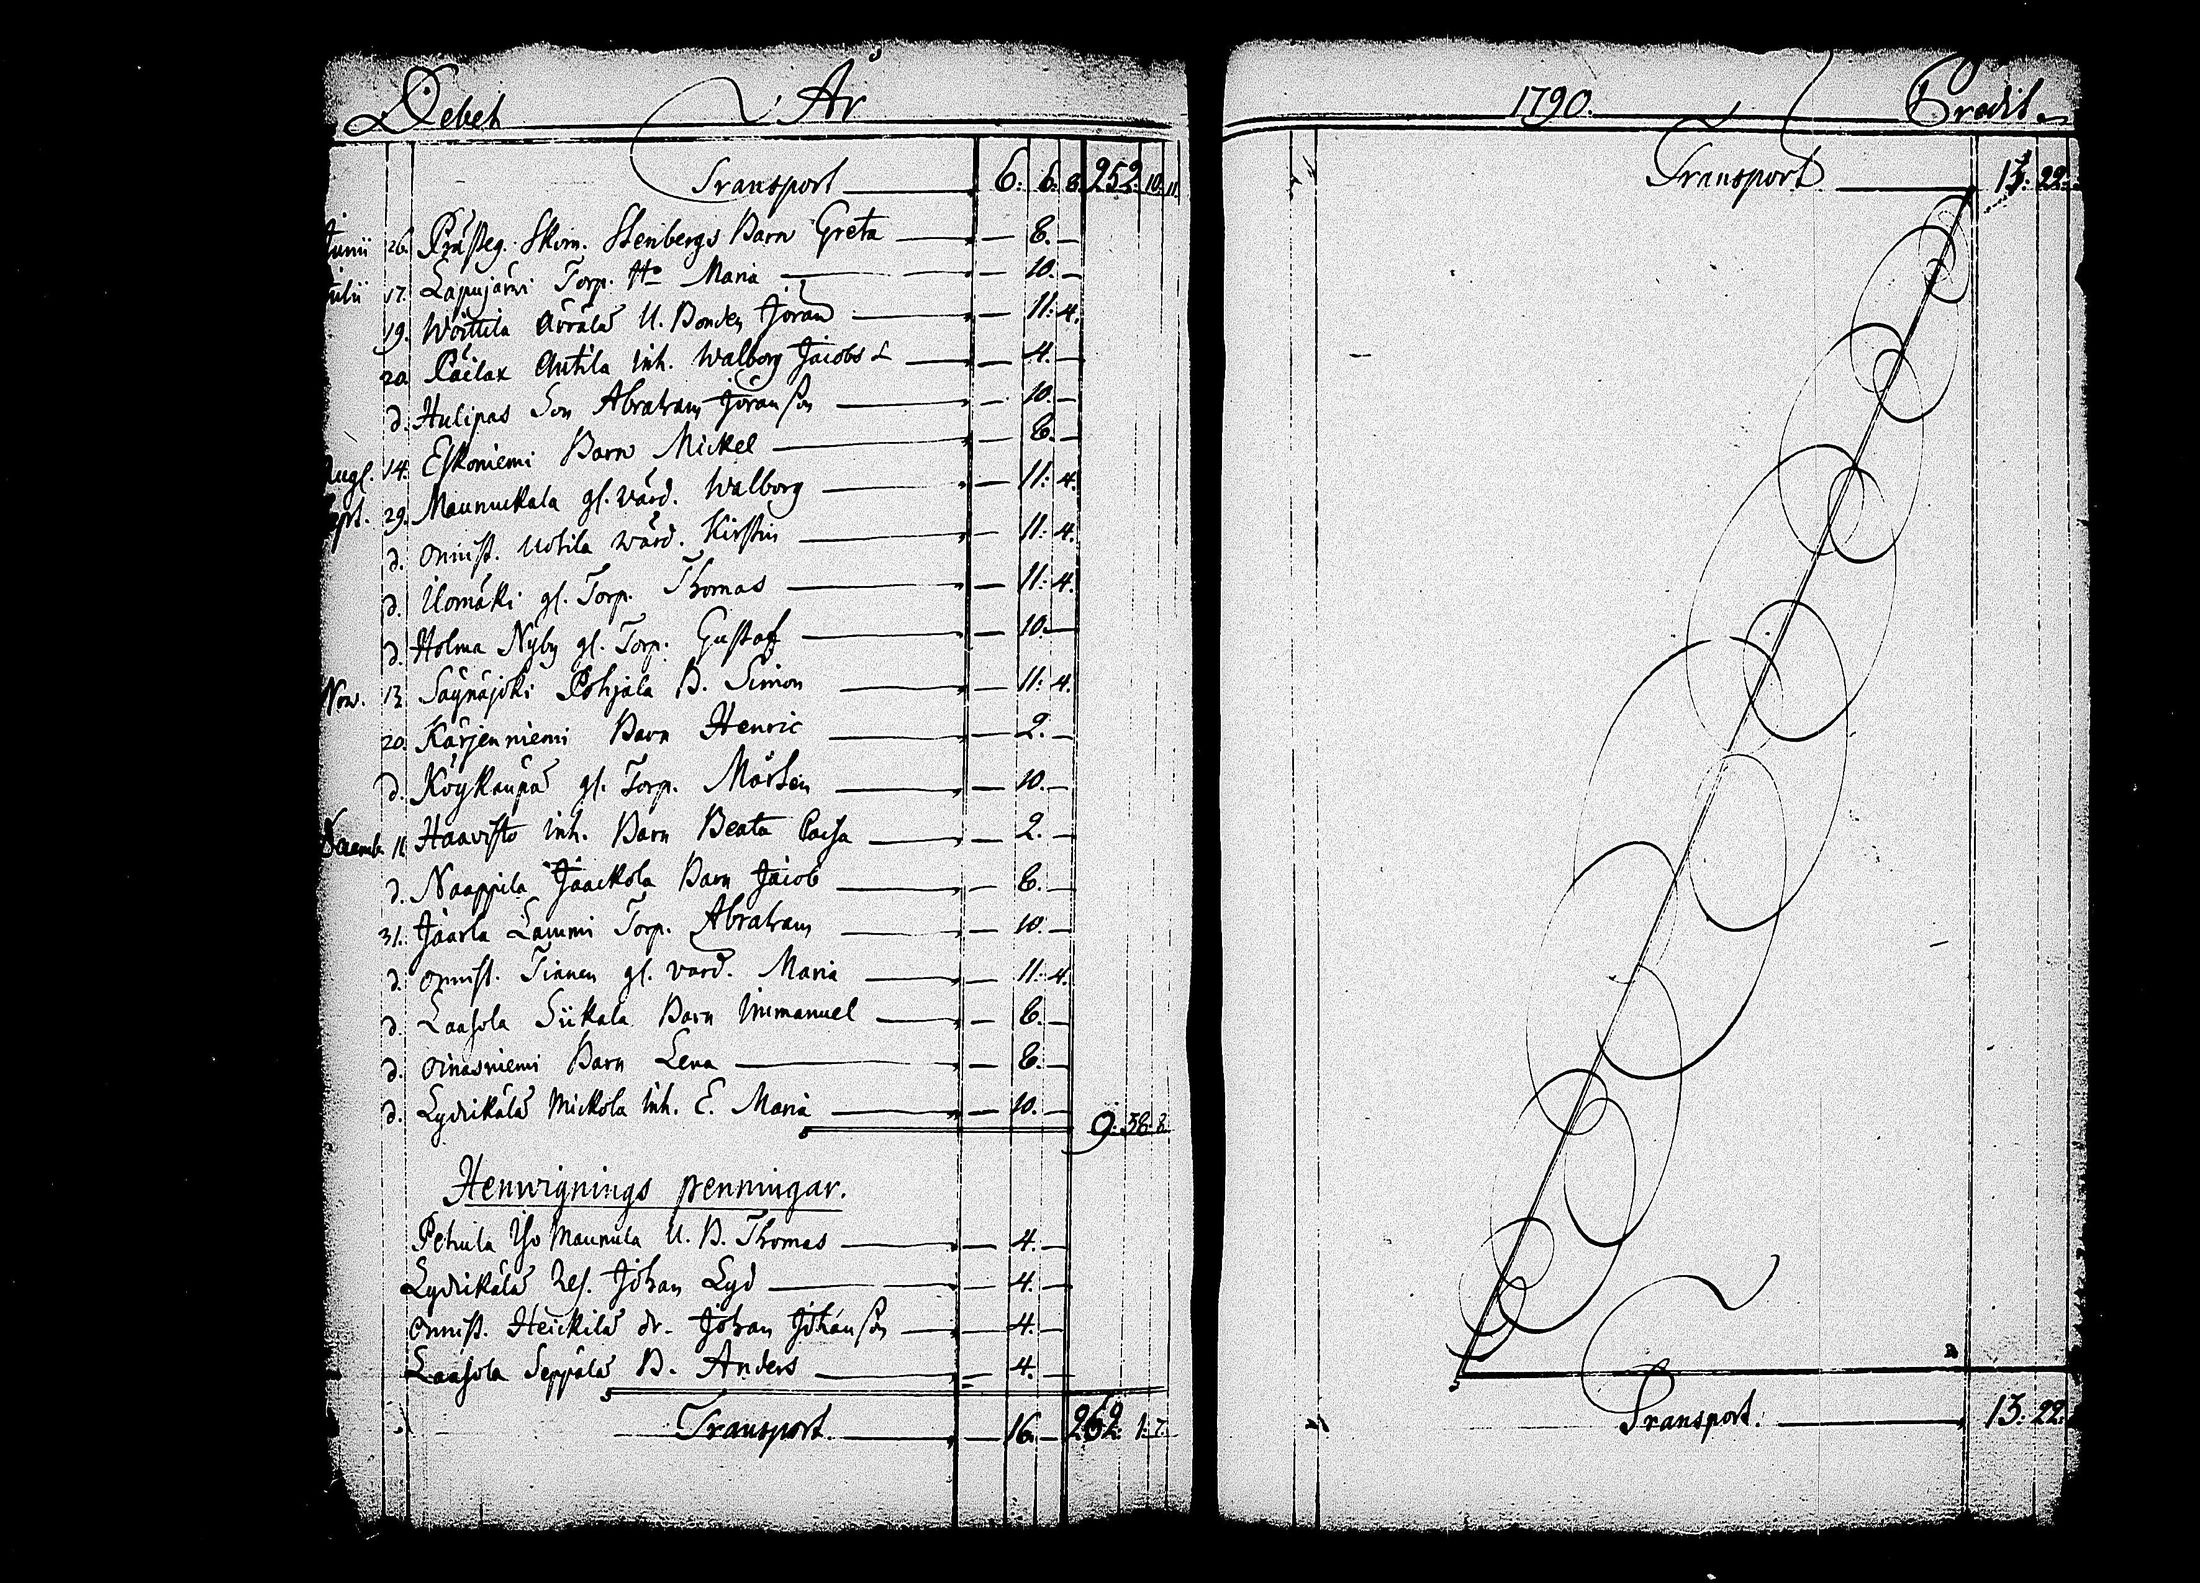 Debet År
Transport 6. 6. 8. 252. 10. 11.
Junii 26. Prästeg. Skom. Stenbergs Barn Greta — 8. —
Julii 17. Lapujärvi Torp. Ho Maria — 10. —
19. Woittila U. Bonden Jöran — 11. 4.
20. Päilax Antila inh. Walborg Jacobs d — 4. —
d. Hulipas Son Abraham Jöransson — 10. —
Augl. 14. Eskoniemi Barn Mickel — 8. —
Sept. 29. Maunuckala gl. värd. Walborg — 11. 4.
d. Onnist. Uotila wärd. Kirstin — 11. 4.
d. Ilomäki gl. Torp. Thomas — 11. 4.
d. Holma Nyby gl. Torp. Gustaf — 10. —
Nov. 13. Säynäjoki Pohjala B. Simon — 11. 4.
20. Kärjenniemi Barn Henric — 2. —
d. Köykänpä gl. Torp. Mårten — 10. —
Decemb. 11. Haavisto inh. Barn Beata Caisa — 2. —
d. Naappila Jaackola Barn Jacob — 8. —
31. Jaarla Lammi Torp. Abraham — 10. —
d. Onnist. Tianen gl. värd. Maria — 11. 4.
d. Laasola Siikala Barn Immanuel — 8. —
d. Oinasniemi Barn Lena — 8. —
d. Lydikälä Mickola inh. E. Maria — 10. — 9. 38. 8.
Henwignings penningar.
Pehula Iso Maunula U. B. Thomas — 4. —
Lydikälä Johan Lyd — 4. —
Onnist. Heickilä dr. Johan Johansson — 4. —
Laasola Seppälä B. Anders — 4. —
Transport. — 16. — 262. 1. 7.
1790. Credit
Transport 13. 22.
Transport. 13. 22.